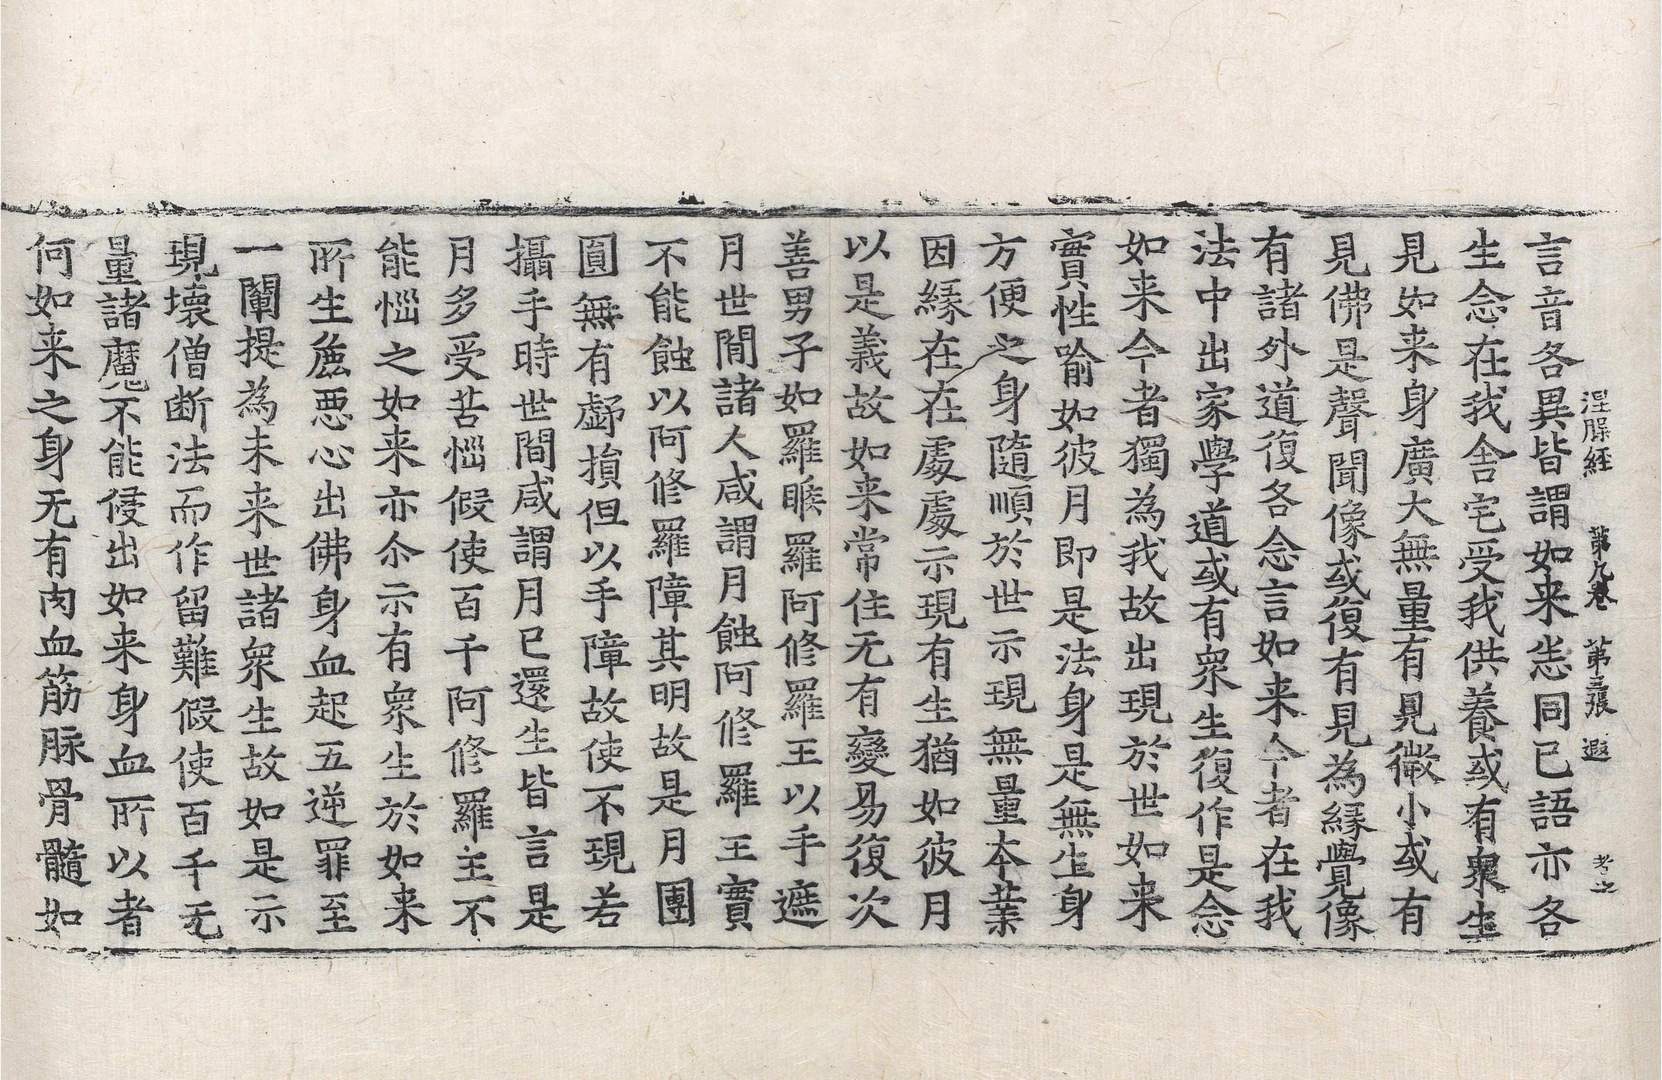 涅槃経 第九卷 第三張 遐 考之
言音各異皆謂如来悉同已語亦各
生念在我舍宅受我供養或有衆生
見如来身廣大無量有見微小或有
見佛是聲聞像或復有見為縁覺像
有諸外道復各念言如来今者在我
法中出家學道或有衆生復作是念
如来今者獨為我故出現於世如来
實性喻如彼月即是法身是無生身
方便之身隨順於世示現無量本業
因縁在在處處示現有生猶如彼月
以是義故如来常住无有變易復次
善男子如羅睺羅阿修羅王以手遮
月世間諸人咸謂月蝕阿修羅王實
不能蝕以阿修羅障其明故是月團
圓無有虧損但以手障故使不現若
攝手時世間咸謂月已還生皆言是
月多受苦惱假使百千阿修羅王不
能惱之如来亦尒示有衆生於如来
所生麁悪心出佛身血起五逆罪至
一闡提為未来世諸衆生故如是示
現壊僧断法而作留難假使百千无
量諸魔不能侵出如来身血所以者
何如来之身无有肉血筋脉骨髓如